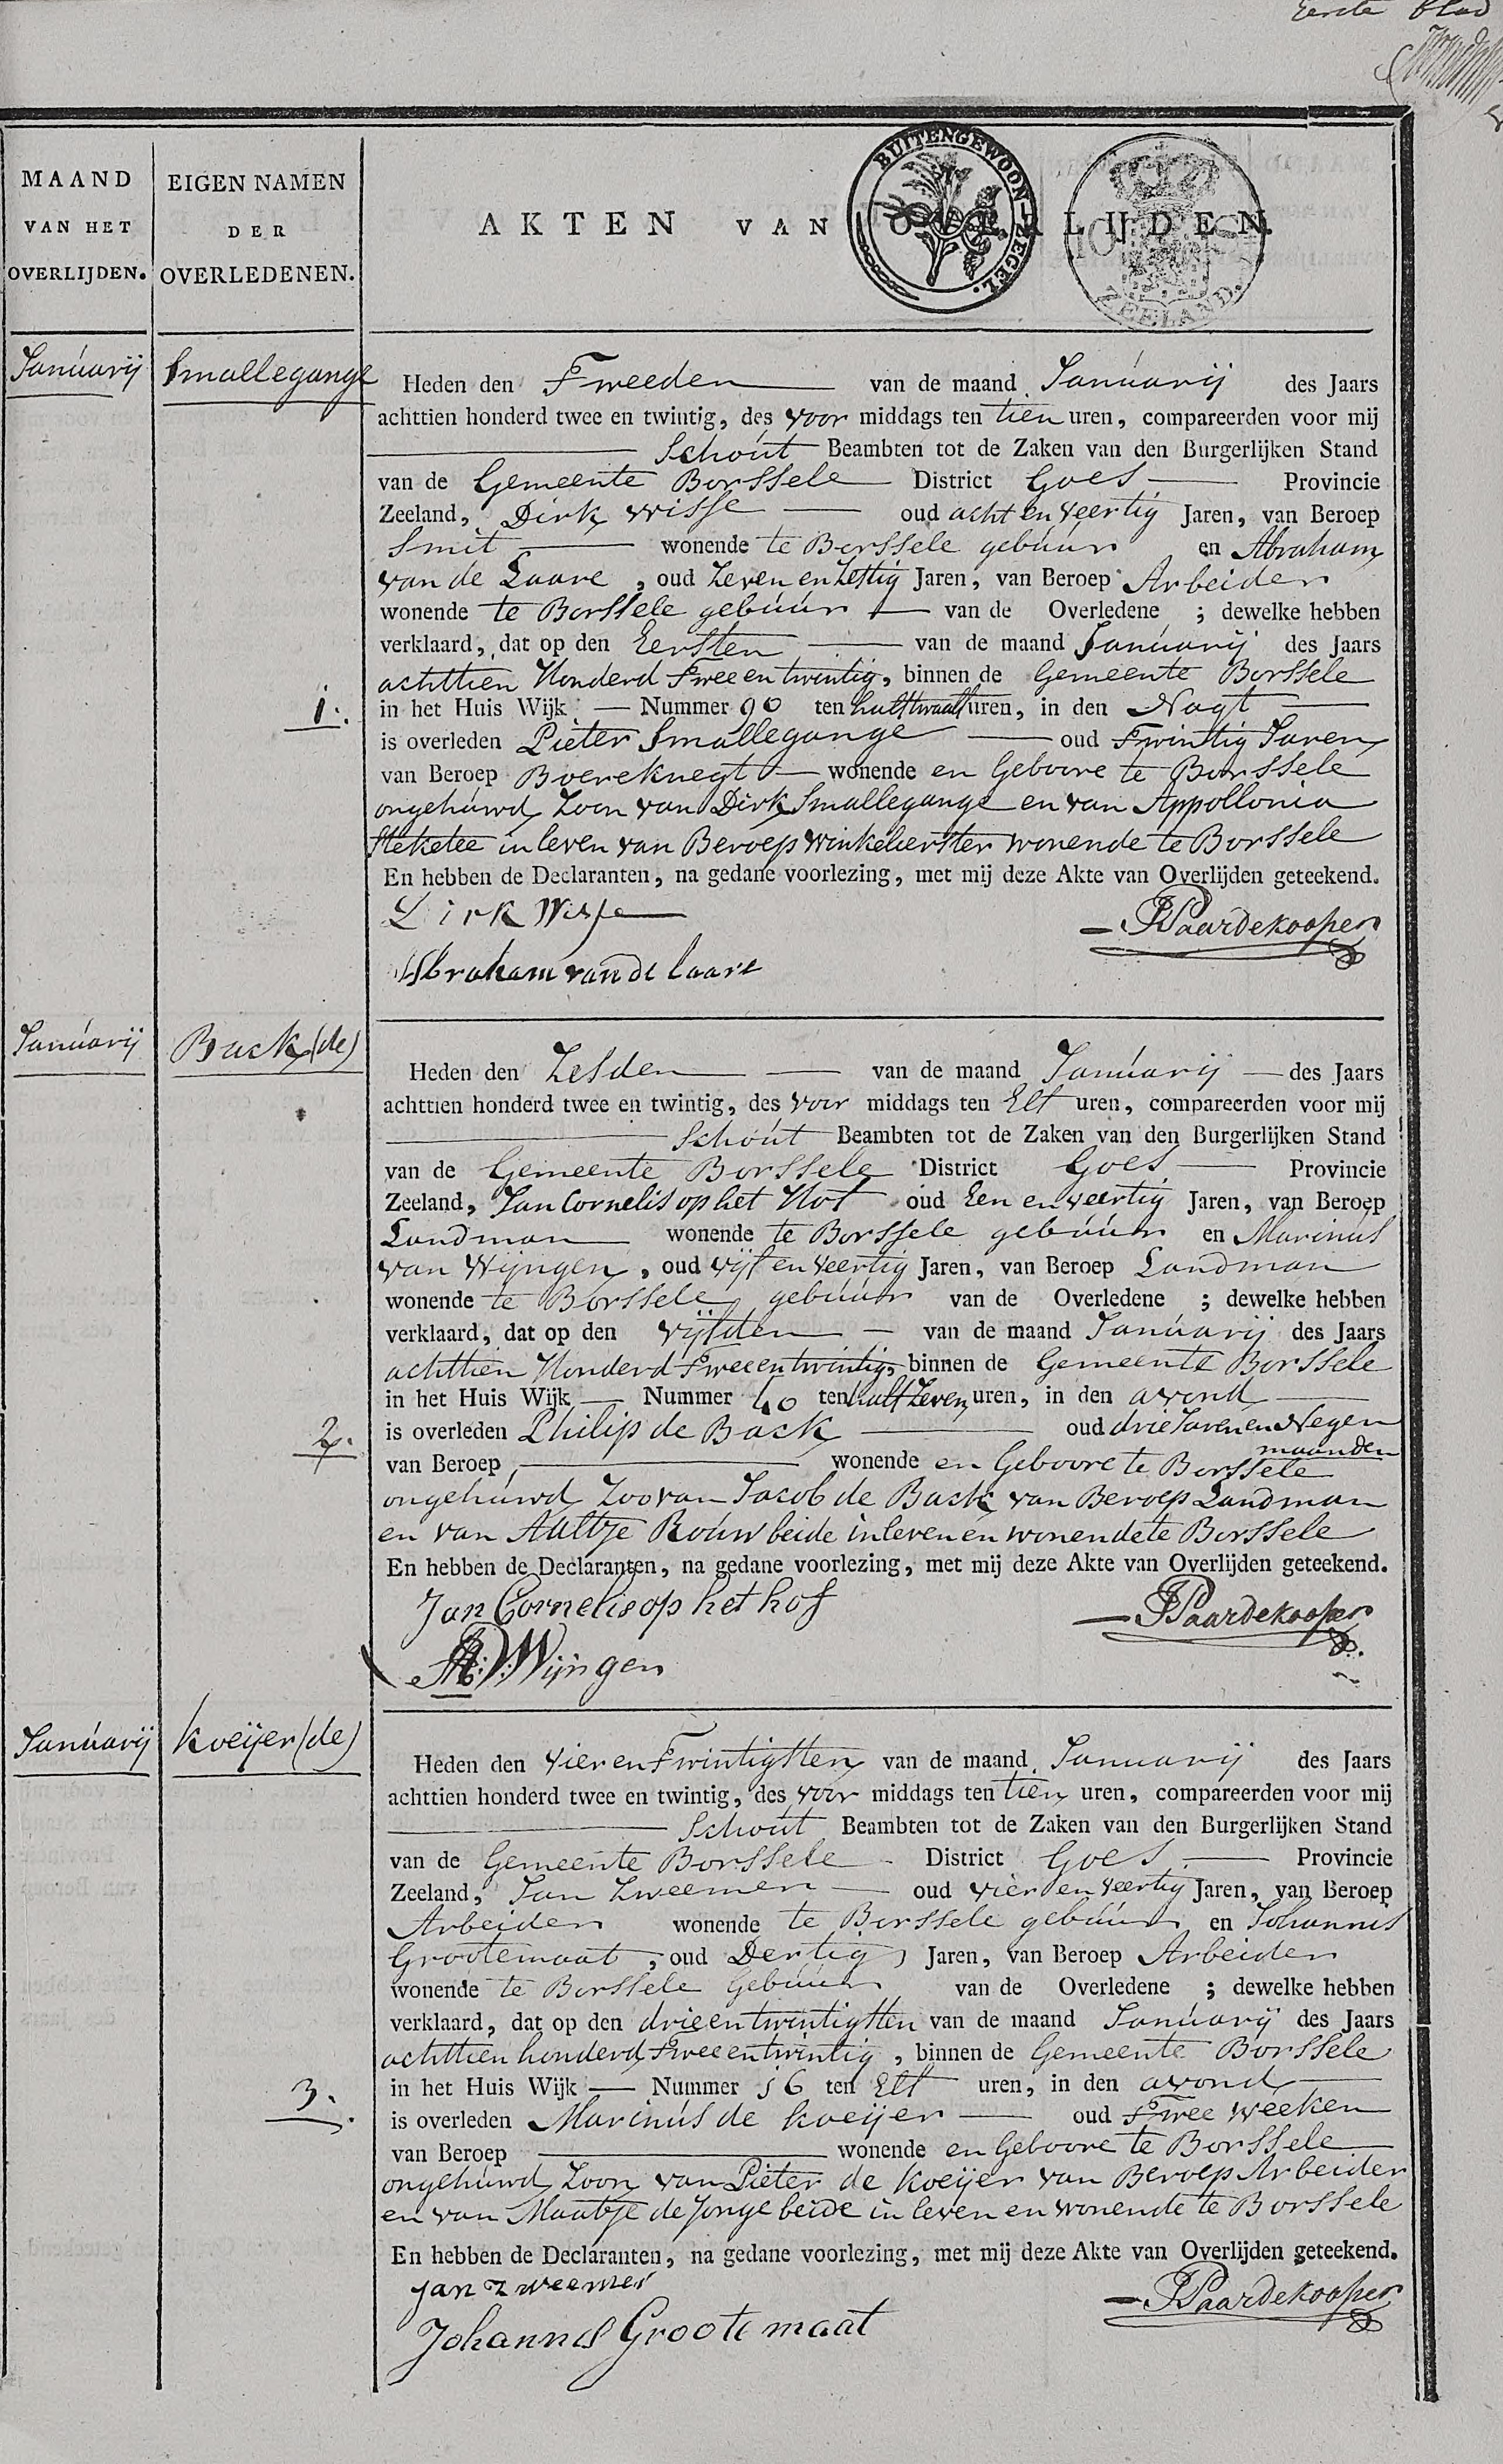 Eerste blad
MAAND
VAN HET
OVERLIJDEN.
EIGEN NAMEN
DER
OVERLEDENEN.
AKTEN VAN OVERLIJDEN.
BUITENGEWOON-ZEGEL.
ZEELAND.
Januarij
Smallegange
1.
Heden den Tweeden van de maand Januarij des Jaars
achttien honderd twee en twintig, des voor middags ten tien uren, compareerden voor mij
Schout Beambten tot de Zaken van den Burgerlijken Stand
van de Gemeente Borssele District Goes Provincie
Zeeland, Dirk Wisse oud acht en veertig Jaren, van Beroep
Smit wonende te Borssele gebuur en Abraham
van de Laare, oud Zeven en Zestig Jaren, van Beroep Arbeider
wonende te Borssele gebuur van de Overledene ; dewelke hebben
verklaard, dat op den Eersten van de maand Januarij des Jaars
achttien Honderd Twee en twintig, binnen de Gemeente Borssele
in het Huis Wijk — Nummer 90 ten half twaalf uren, in den Nagt
is overleden Pieter Smallegange oud Twintig Jaren
van Beroep Boereknegt wonende en Geboore te Borssele
ongehuwd Zoon van Dirk Smallegange en van Appollonia
Steketee in leven van Beroep winkelierster wonende te Borssele
En hebben de Declaranten, na gedane voorlezing, met mij deze Akte van Overlijden geteekend.
Dirk Wisse
Paardekooper
Abraham van de laare
Januarij
Back (de)
2.
Heden den Zesden van de maand Januarij des Jaars
achttien honderd twee en twintig, des voor middags ten Elf uren, compareerden voor mij
Schout Beambten tot de Zaken van den Burgerlijken Stand
van de Gemeente Borssele District Goes Provincie
Zeeland, Jan Cornelis op het Hof oud Een en veertig Jaren, van Beroep
Landman wonende te Borssele gebuur en Marinus
van Wijngen, oud vijf en veertig Jaren, van Beroep Landman
wonende te Borssele gebuur van de Overledene ; dewelke hebben
verklaard, dat op den vijfden van de maand Januarij des Jaars
achttien Honderd Twee en twintig, binnen de Gemeente Borssele
in het Huis Wijk — Nummer 40 ten half Zeven uren, in den avond
is overleden Philip de Back oud drie Jaren en Negen
maanden
van Beroep, wonende en Geboore te Borssele
ongehuwd Zoo van Jacob de Back van Beroep Landman
en van Aaltje Rouw beide in leven en wonende te Borssele
En hebben de Declaranten, na gedane voorlezing, met mij deze Akte van Overlijden geteekend.
Jan Cornelis op het hof
Paardekooper
M: V: Wijngen
Januarij
Koeijer (de)
3.
Heden den Vier en Twintigsten van de maand Januarij des Jaars
achttien honderd twee en twintig, des voor middags ten tien uren, compareerden voor mij
Schout Beambten tot de Zaken van den Burgerlijken Stand
van de Gemeente Borssele District Goes Provincie
Zeeland, Jan Zweemer oud vier en veertig Jaren, van Beroep
Arbeider wonende te Borssele gebuur en Johannis
Grootemaat, oud Dertig Jaren, van Beroep Arbeider
wonende te Borssele Gebuur van de Overledene ; dewelke hebben
verklaard, dat op den drie en twintigsten van de maand Januarij des Jaars
achttien honderd Twee en twintig, binnen de Gemeente Borssele
in het Huis Wijk — Nummer 56 ten Elf uren, in den avond
is overleden Marinus de Koeijer oud Twee Weeken
van Beroep wonende en Geboore te Borssele
ongehuwd Zoon van Pieter de Koeijer van Beroep Arbeider
en van Maatje de Jonge beide in leven en wonende te Borssele
En hebben de Declaranten, na gedane voorlezing, met mij deze Akte van Overlijden geteekend.
Jan Zweemer
Paardekooper
Johannes Grootemaat